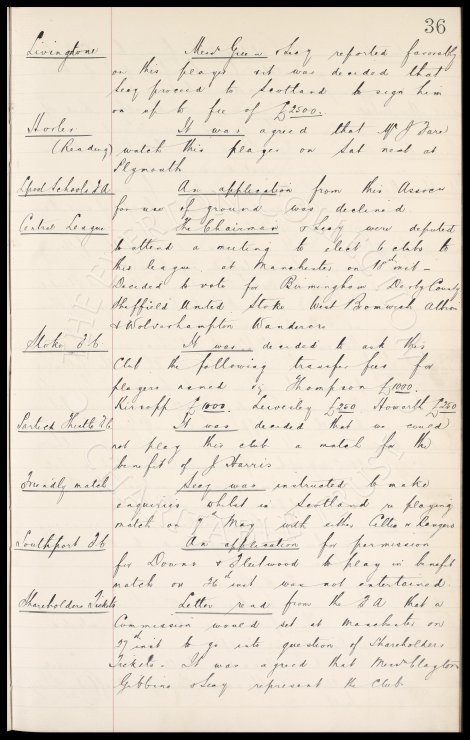 36
Livingstone Messrs Green & Secy reported favorably
on this player & it was decided that
Secy proceed to Scotland to sign him
on up to fee of £2500.
Hooles It was agreed that Mr J Fare
(Reading) watch this player on Sat next at
Plymouth
Lpool Schools F.A. An application from this Assocn
for use of ground was declined
Central League The Chairman & Secy were deputed
to attend a meeting to elect 6 clubs to
this league at Manchester on inst -
Decided to vote for Birmingham Derby County
Sheffield United Stoke West Bromwich Albion
& Wolverhampton Wanderers
Stoke F.C. It was decided to ask this
Club the following transfer fees for
players named Thompson £1000.
Kirsopp £1000. Leiversley £250 Howarth £250
Partick Thistle F.C. It was decided that we could
not play this club a match for the
benefit of J Harris
Friendly match Secy was instructed to make
enquiries whilst in Scotland re playing
match on 7th May with either Celtic or Rangers
Southport F.C. An application for permission
for Downs & Fleetwood to play in benefit
match on 26th inst was not entertained.
Shareholders Tickets Letter read from the F A that a
Commission would set at Manchester on
27th inst to go into question of Shareholders
Tickets - It was agreed that Messrs Clayton
Gibbins & Secy represent the Club